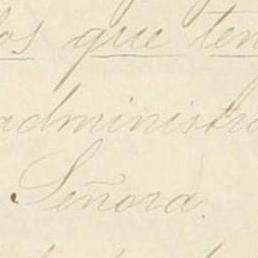 los que ten
administra
Señora.